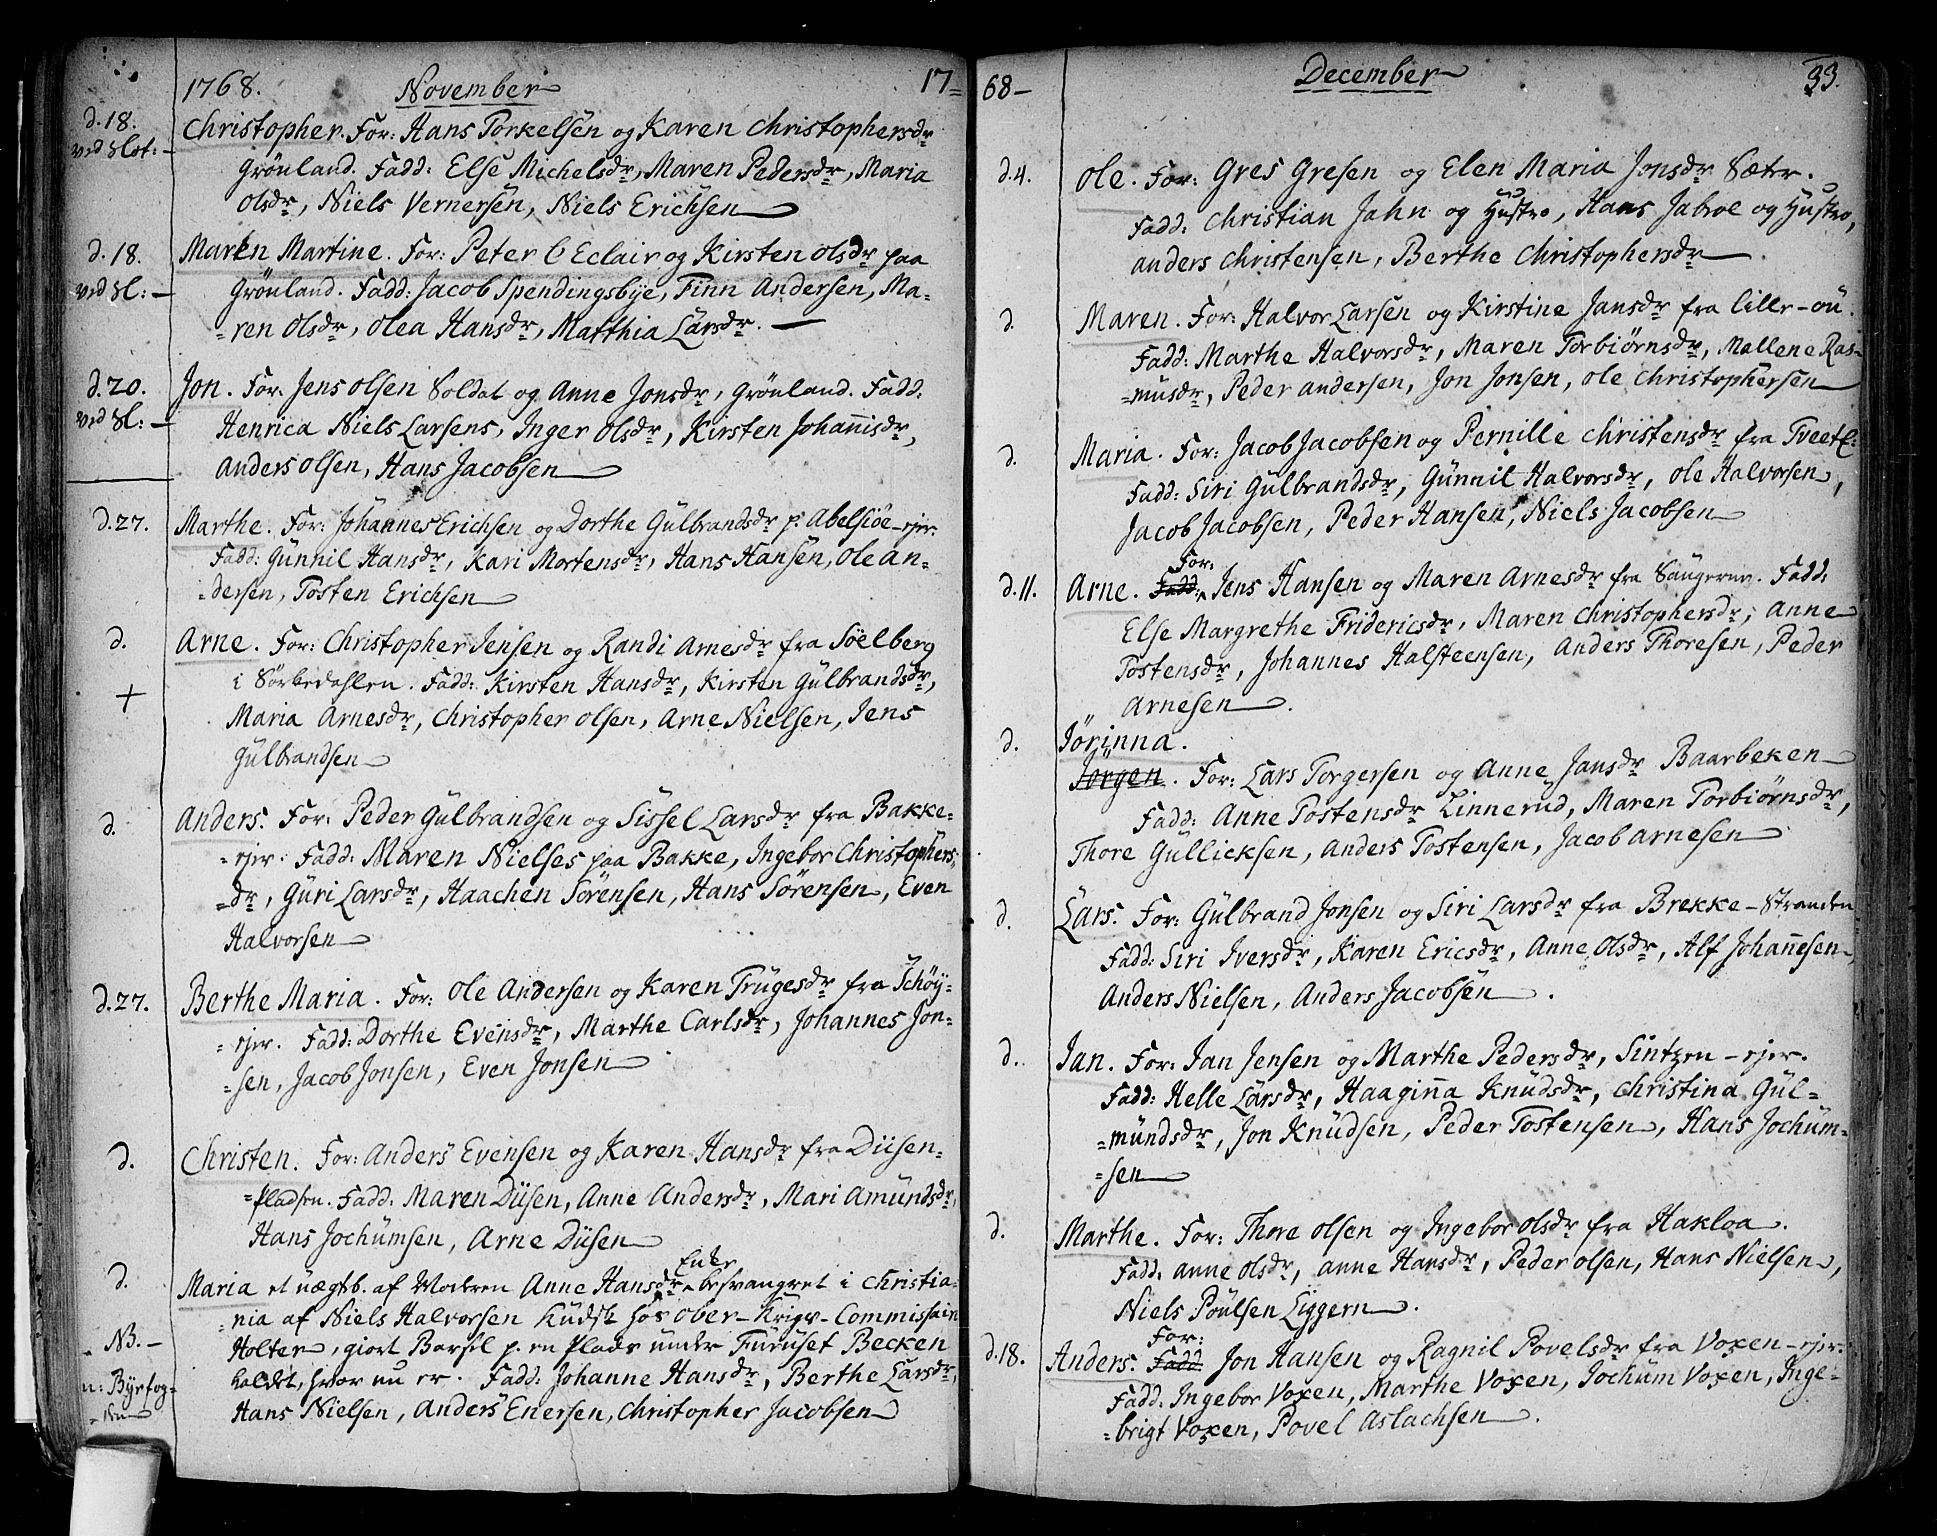 1768. November 17=
d. 18. Christopher. For: Hans Torkelsen og Karen Christophersdr
ved Slot: - Grönland. Fadd: Else Michelsdr, Maren Pedersdr, Maria
Olsdr, Niels Vernersen, Niels Erichsen
d. 18. Maren Martine. For: Peter l'Eclair og Kirsten Olsdr paa
ved Sl: - Grönland. Fadd: Jacob Spendingsbye, Finn Andersen, Ma=
=ren Olsdr, Olea Hansdr, Matthia Larsdr. -
d. 20. Jon. For: Jens Olsen Soldat og Anne Jonsdr, Grönland. Fadd:
ved Sl: - Henrica Niels Larsens, Inger Olsdr, Kirsten Johannisdr,
Anders Olsen, Hans Jacobsen
d. 27. Marthe. For: Johannes Erichsen og Dorthe Gülbrandsdr p. Abelsiöe-ejer.
Fadd: Günnil Hansdr, Kari Mortensdr, Hans Hansen, Ole An=
=dersen, Tosten Erichsen
d. Arne. For: Christopher Jensen og Randi Arnesdr fra Söelberg
+ i Sörkedahlen. Fadd: Kirsten Hansdr, Kirsten Gülbrandsdr,
Maria Arnesdr, Christopher Olsen, Arne Nielsen, Jens
Gülbrandsen
d. Anders. For: Peder Gülbrandsen og Sissel Larsdr fra Bakke=
=ejer. Fadd: Maren Nielses paa Bakke, Ingebor Christophers=
=dr, Güri Larsdr, Haachen Sörensen, Hans Sörensen, Even
Halvorsen
d. 27. Berthe Maria. For: Ole Andersen og Karen Trügesdr fra Schöy=
=ejer. Fadd: Dorthe Evensdr, Marthe Carlsdr, Johannes Jon=
=sen, Jacob Jonsen, Even Jonsen
d. Christen. For: Anders Evensen og Karen Hansdr fra Diisen=
=Pladsen. Fadd: Maren Diisen, Anne Andersdr, Mari Amundsdr,
Hans Jochümsen, Arne Diisen
Enke
d. Maria et uægtb. af Moderen Anne Hansdr besvangret i Christia=
=nia af Niels Halvorsen Kudsk hos Ober-Krigs-Commissair
NB. - Holter, giort Barsel p. en Plads under Furuset Becken
n: Byefog= kaldet, hvor nu er. Fadd: Johanne Hansdr, Berthe Larsdr,
=den Hans Nielsen, Anders Enersen, Christopher Jacobsen
68- December 33.
d. 4. Ole. For: Gres Gresen og Elen Maria Jonsdr Sæter.
Fadd: Christian Jahn og Hustro, Hans Jabroe og Hustro,
Anders Christensen, Berthe Christophersdr
d. Maren. For: Halvor Larsen og Kirstine Jansdr fra Lille-öü.
Fadd: Marthe Halvorsdr, Maren Torbiörnsdr, Mallene Ras=
=musdr, Peder Andersen, Jon Jonsen, Ole Christophersen
d. Maria. For: Jacob Jacobsen og Pernille Christensdr fra TveetE:
Fadd: Siri Gülbrandsdr, Günnil Halvorsdr, Ole Halvorsen,
Jacob Jacobsen, Peder Hansen, Niels Jacobsen
For:
d. 11. Arne. Fadd: Jens Hansen og Maren Arnesdr fra Saugerne. Fadd:
Else Margrethe Fridericsdr, Maren Christophersdr, Anne
Tostensdr, Johannes Halsteensen, Anders Thoresen, Peder
Arnesen.
d. Jörinna.
Jörgen. For: Lars Torgersen og Anne Jansdr Baarbeken
Fadd: Anne Tostensdr Linnerud, Maren Torbiörnsdr,
Thore Güllicksen, Anders Tostensen, Jacob Arnesen
d. Lars. For: Gülbrand Jonsen og Siri Larsdr fra Brekke-Stranden
Fadd: Siri Iversdr, Karen Ericsdr, Anne Olsdr, Alf Johannesen,
Anders Nielsen, Anders Jacobsen.
d. Jan. For: Jan Jensen og Marthe Pedersdr, Sintzen-ejer.
Fadd: Helle Larsdr, Haaginna Knüdsdr, Christina Gül=
=mündsdr, Jon Knüdsen, Peder Tostensen, Hans Jochüm=
=sen
d. Marthe. For: Thore Olsen og Ingebor Olsdr fra Hakloa.
Fadd: Anne Olsdr, Anne Hansdr, Peder Olsen, Hans Nielsen,
Niels Poülsen Liggern.
For:
d. 18. Anders. Fadd Jon Hansen og Ragnil Povelsdr fra Voxen-ejer.
Fadd: Ingebor Voxen, Marthe Voxen, Jochüm Voxen, Inge=
=brigt Voxen, Povel Aslachsen.